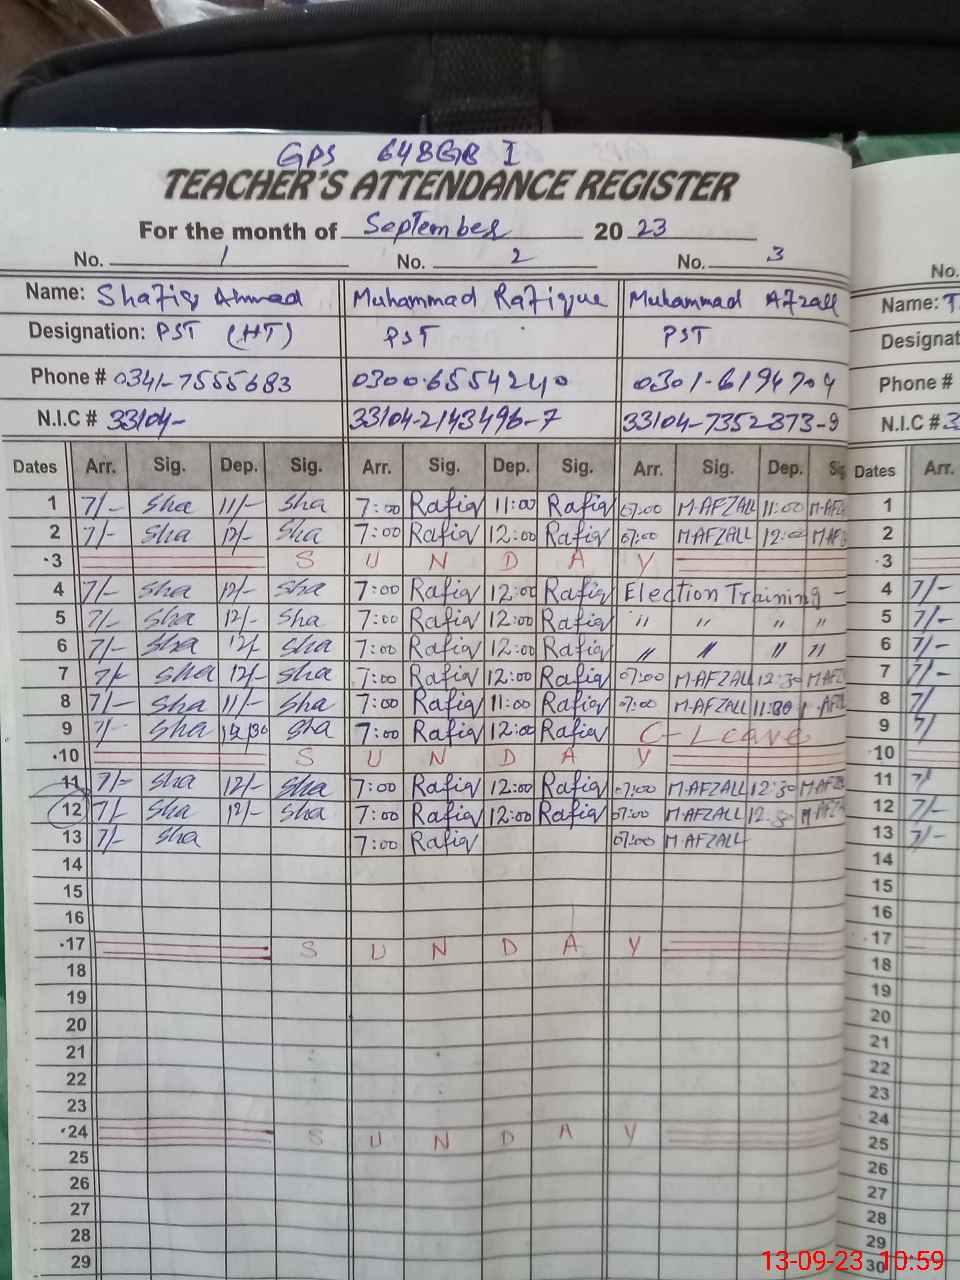 GPS 648GB I
TEACHER'S ATTENDANCE REGISTER
For the month of September 20 23
No. 1 No. 2 No. 3 No.
Name: Shafiq Ahmad Muhammad Rafique Muhammad Afzall Name: T
Designation: PST (HT) PST PST Designat
Phone # 0341-7555683 0300-6554240 0301-6194709 Phone #
N.I.C # 33104- 33104-2143496-7 33104-7352373-9 N.I.C # 3
Dates Arr. Sig. Dep. Sig. Arr. Sig. Dep. Sig. Arr. Sig. Dep. Sig Dates Arr.
1 7/- Sha 11/- Sha 7:00 Rafiq 11:00 Rafiq 07:00 M.AFZALL 11:00 M.AFZA 1
2 7/- Sha 12/- Sha 7:00 Rafiq 12:00 Rafiq 07:00 M.AFZALL 12:00 M.AFZ 2
3 S U N D A Y 3
4 7/- Sha 12/- Sha 7:00 Rafiq 12:00 Rafiq Election Training - 4 7/-
5 7/- Sha 12/- Sha 7:00 Rafiq 12:00 Rafiq " " " " 5 7/-
6 7/- Sha 12/- Sha 7:00 Rafiq 12:00 Rafiq " " " " 6 7/-
7 7/- Sha 12/- Sha 7:00 Rafiq 12:00 Rafiq 07:00 M.AFZALL 12:30 M.AFZ 7 7/-
8 7/- Sha 11/- Sha 7:00 Rafiq 11:00 Rafiq 07:00 M.AFZALL 11:30 M.AFZ 8 7/
9 7/- Sha Sha 7:00 Rafiq 12:00 Rafiq C-Leave 9 7/
10 S U N D A Y 10
11 7/- Sha 12/- Sha 7:00 Rafiq 12:00 Rafiq 07:00 M.AFZALL 12:30 M.AFZA 11 7/
12 7/- Sha 12/- Sha 7:00 Rafiq 12:00 Rafiq 07:00 M.AFZALL 12:30 M.AFZA 12 7/-
13 7/- Sha 7:00 Rafiq 07:00 M.AFZALL 13 7/-
14 14
15 15
16 16
17 S U N D A Y 17
18 18
19 19
20 20
21 21
22 22
23 23
24 S U N D A Y 24
25 25
26 26
27 27
28 28
29 29
30
13-09-23 10:59